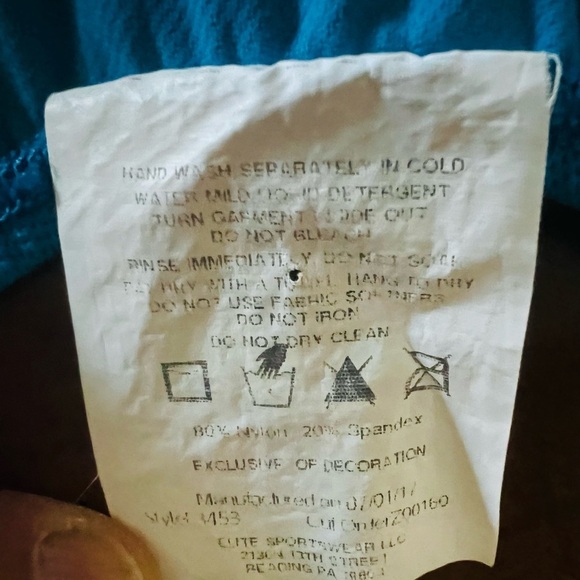 HAND WASH SEPARATELY IN COLD
WATER MILD LIQUID DETERGENT
TURN GARMENT INSIDE OUT
DO NOT BLEACH
RINSE IMMEDIATELY DO NOT SOAK
DRY WITH A TOWEL HANG TO DRY
DO NOT USE FABRIC SOFTNERS
DO NOT IRON
DO NOT DRY CLEAN
80% Nylon 20% Spandex
EXCLUSIVE OF DECORATION
Manufactured on 07/01/17
Style# Cut Order Z00160
ELITE SPORTSWEAR LLC
13TH STREET
READING PA